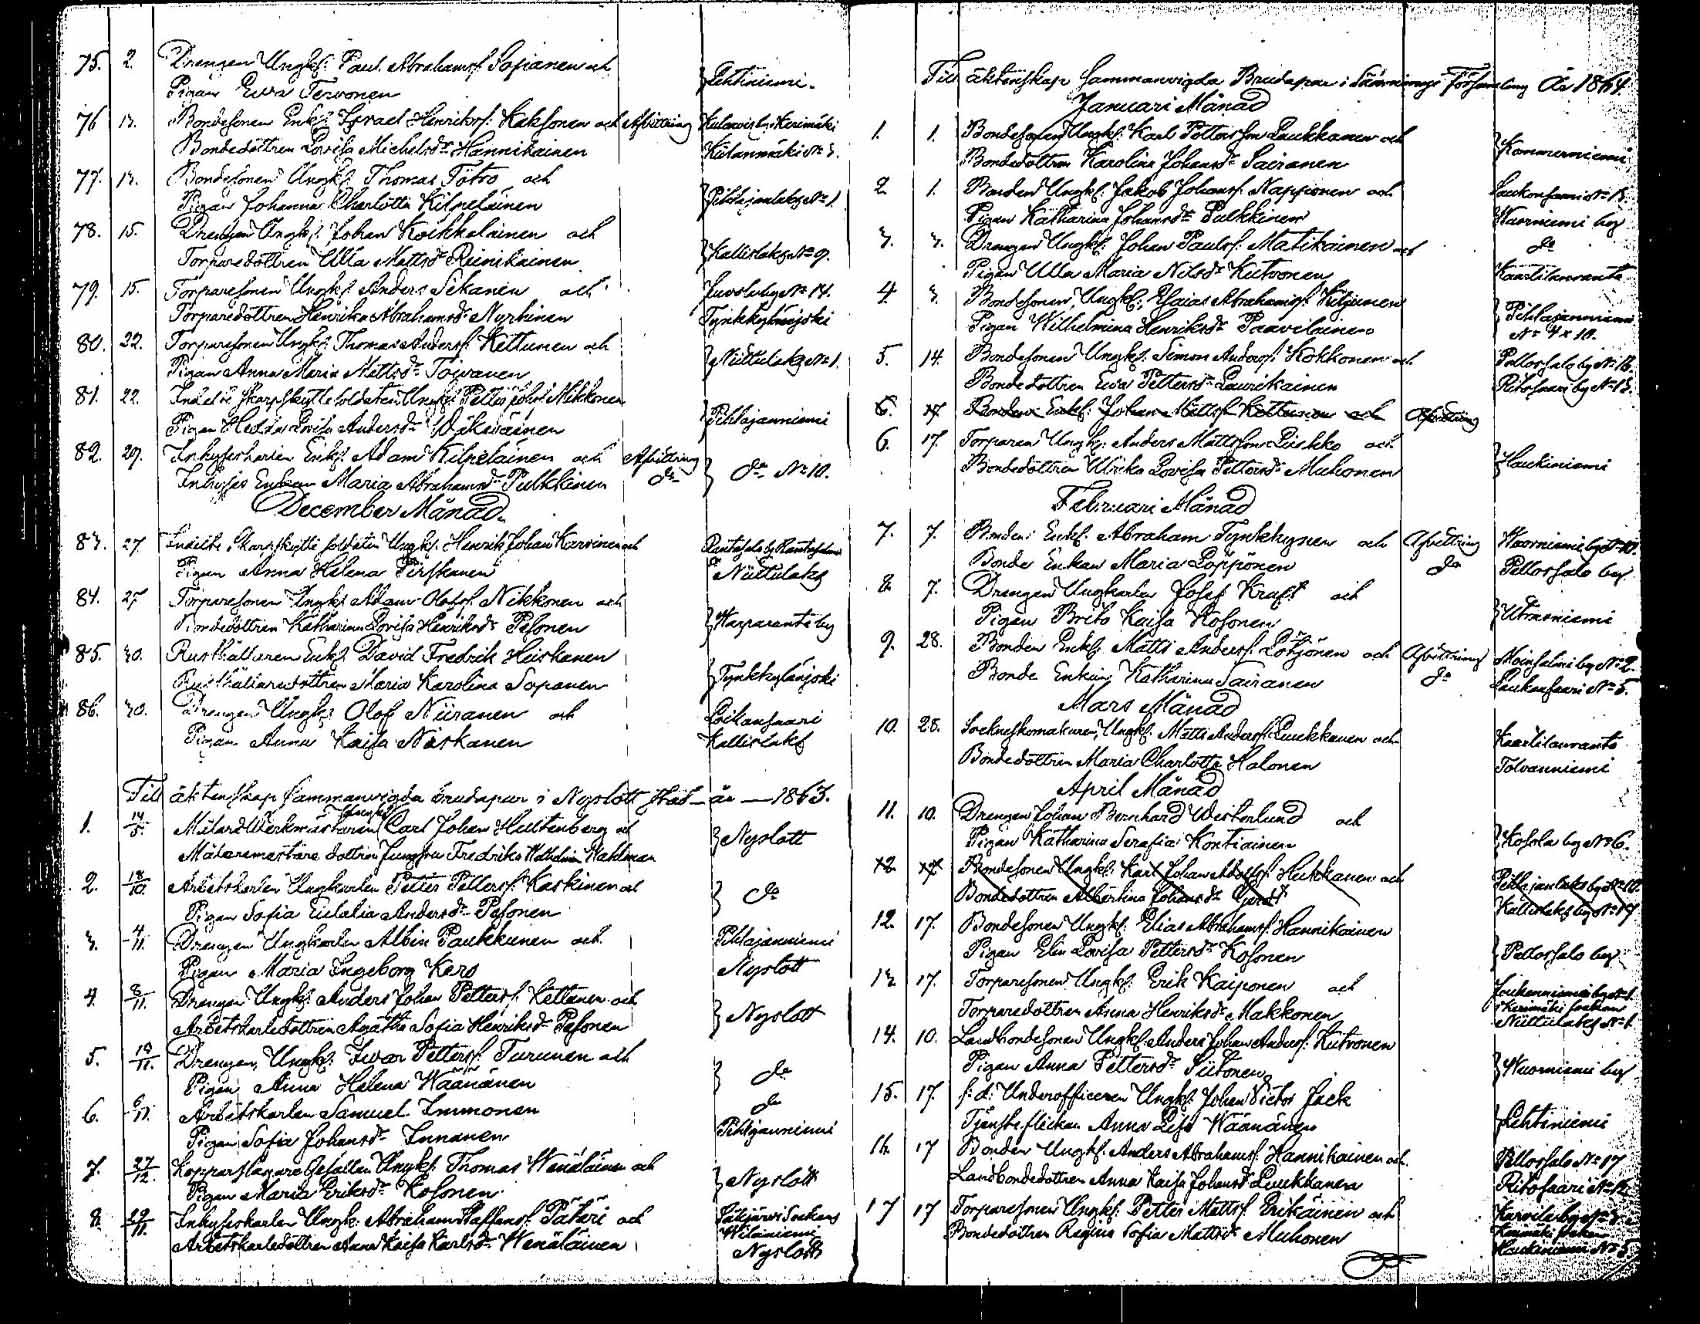 75. 2. Drengen Ungk: Paul Abrahamsf Sapanen och
Pigan Ewa Tervonen } Lehtiniemi.
76 13. Bondesonen Enkl Israel Henriksf. Keksonen och Afvittring Kerimäki
Bondedottren Lovisa Michelsdr Hannikainen
77. 13. Bondesonen Ungk. Thomas Tötrö och
Pigan Johanna Charlotta Kilpeläinen } Pihlajanlaks No 1.
78. 15. Drengen Ungk. Johan Kockkalainen och
Torparedottren Ulla Mattsdr Reinikainen } Kallislaks No 9.
79. 15. Torparesonen Ungk Anders Sekanen och Juvola by No 14.
Torparedottren Henrika Abrahamsdr Nyrhinen Tynkkylänjoki
80. 22. Torparesonen Ungk. Thomas Andersf. Kettunen och
Pigan Anna Maria Mattsdr Toivanen } Niittulaks No 1.
81. 22. Indelte Skarpskytte Soldaten Ungk: Petter Johan Mikkonen
Pigan Hedda Lovisa Andersdr Väkeväinen } Pihlajanniemi
82. 27. Inhyseskarlen Enkl. Adam Kilpeläinen och Afvittring
Inhyses Enkan Maria Abrahamsdr Pulkkinen do } do No 10.
December Månad.
83. 27. Indelte Skarpskytte soldaten Ungk. Henrik Johan Karvinen och Rantasalo by
Pigan Anna Helena Pirskanen Niittulaks
84. 27 Torparesonen Ungk Adam Olofsf. Nikkonen och
Bondedottren Katharina Lovisa Henriksdr Pesonen } Warparanta by
85. 30. Rusthållaren Enkl. David Fredrik Heiskanen
Rusthållaredottren Maria Karolina Sopanen } Tynkkylänjoki
86. 30. Drengen Ungk. Olof Niiranen och Loikansaari
Pigan Anna Kaisa Naskanen Kallislaks
Till äktenskap sammanvigda brudapar i Nyslott Stad år 1863.
1. 14/5 Målare Werkmästaren Carl Johan Hultenberg och
Målaremästare dottren Jungfru Fredrika Wilhelmina Wahlman } Nyslott
2. 18/10 Arbetskarlen Ungkarlen Petter Pettersf. Kaskinen och
Pigan Sofia Eulalia Andersdr Pesonen } do
3. 4/11. Drengen Ungkarlen Albin Paukkunen och Pihlajanniemi
Pigan Maria Ingeborg Kero Nyslott
4. 8/11. Drengen Ungk. Anders Johan Pettersf. Kettunen och
Arbetskarledottren Agatha Sofia Henriksdr Pesonen } Nyslott
5. 19/11. Drengen, Ungk. Iwar Pettersf. Turunen och
Pigan Anna Helena Wäänänen } do
6. 6/11. Arbetskarlen Samuel Immonen do
Pigan Sofia Johansdr Innanen Pihlajanniemi
7. 27/12. Kopparslagare Gesällen Ungk. Thomas Wenäläinen och
Pigan Maria Eriksdr Kosonen } Nyslott
8. 29/11. Inhyseskarlen Ungk. Abraham Staffansf. Pätäri och
Arbetskarledottren Anna Kaisa Karlsdr Wenäläinen Nyslott
Till äktenskap sammanvigda Brudapar i Sääminge Församling År 1864
Januari Månad
1. 1. Bondesonen Ungk. Karl Petterson Luukkanen och
Bondedottren Karolina Johansdr Sairanen } Kommerniemi
2 1. Bonden Ungk. Jakob Johansf. Nappionen och Laukansaari No 13.
Pigan Katharina Johansdr Pulkkinen Wuorniemi by
3. 3. Drengen Ungk. Johan Paulsf. Matikainen och do
Pigan Ulla Maria Nilsdr Kutvonen Kaartilanranta
4 3. Bondesonen Ungk: Esaias Abrahamsf. Kiljunen
Pigan Wilhelmina Henriksdr Paavilainen } Pihlajanniemi No 9 o 10.
5. 14. Bondesonen Ungk. Simon Andersf. Kokkonen och Pellossalo by No 16.
Bondedottren Ewa Pettersdr Laurikainen Ritosaari by No 13.
6. 17. Bonden Enkl. Johan Mattsf. Kettunen och Afvittring
6. 17. Torparen Ungk. Anders Mattsson Liukko och
Bondedottren Ulrika Lovisa Pettersdr Muhonen } Haukiniemi
Februari Månad
7. 7. Bonden Enkl. Abraham Tynkkynen och Afvittring Wuorniemi by No 10.
Bonde Enkan Maria Löppönen do Pellossalo by
8. 7. Drengen Ungkarlen Josef Kraft och
Pigan Brita Kaisa Kosonen } Utrasniemi
9. 28. Bonden Enkl. Matti Andersf. Lötjönen och Afvittring Moinsalmi by No 2.
Bonde Enkan Katharina Sairanen do Laukansaari No 5.
Mars Månad
10. 28. Sockneskomakaren, Ungk. Matti Andersf. Luukkanen och Kaartilanranta
Bondedottren Maria Charlotta Halonen Tolvanniemi
April Månad
11. 10. Drengen Johan Bernhard Westerlund och
Pigan Katharina Serafia Kontiainen } Kosola by No 6.
12. 17. Bondesonen Ungk. Karl Johan Adolfsf. Hukkanen och Pihlajanlaks by No 10.
Bondedottren Albertina Johansdr Gerdt Kallislaks by No 17
12. 17. Bondesonen Ungk. Elias Abrahamsf. Hannikainen
Pigan Elin Lovisa Pettersdr Kosonen } Pellossalo by
13 17. Torparesonen Ungk. Erik Kaiponen och
Torparedottren Anna Henriksdr Makkonen Niittulaks No 1.
14. 10. Landbondesonen Ungk. Anders Johan Andersf. Kutvonen
Pigan Anna Pettersdr Siitonen } Wuorniemi by
15. 17. f: d: Underofficeren Ungk. Johan Victor Jack
Tjensteflickan Anna Lisa Wäänänen } Lehtiniemi
16. 17 Bonden Ungk. Anders Abrahamsf. Hannikainen och Pellossalo No 17
Landbondedottren Anna Kaisa Johansdr Luukkanen Ritosaari No 12
17 17 Torparesonen Ungk. Petter Mattsf. Erikäinen och
Bondedottren Regina Sofia Mattsdr Muhonen Haukiniemi No 5